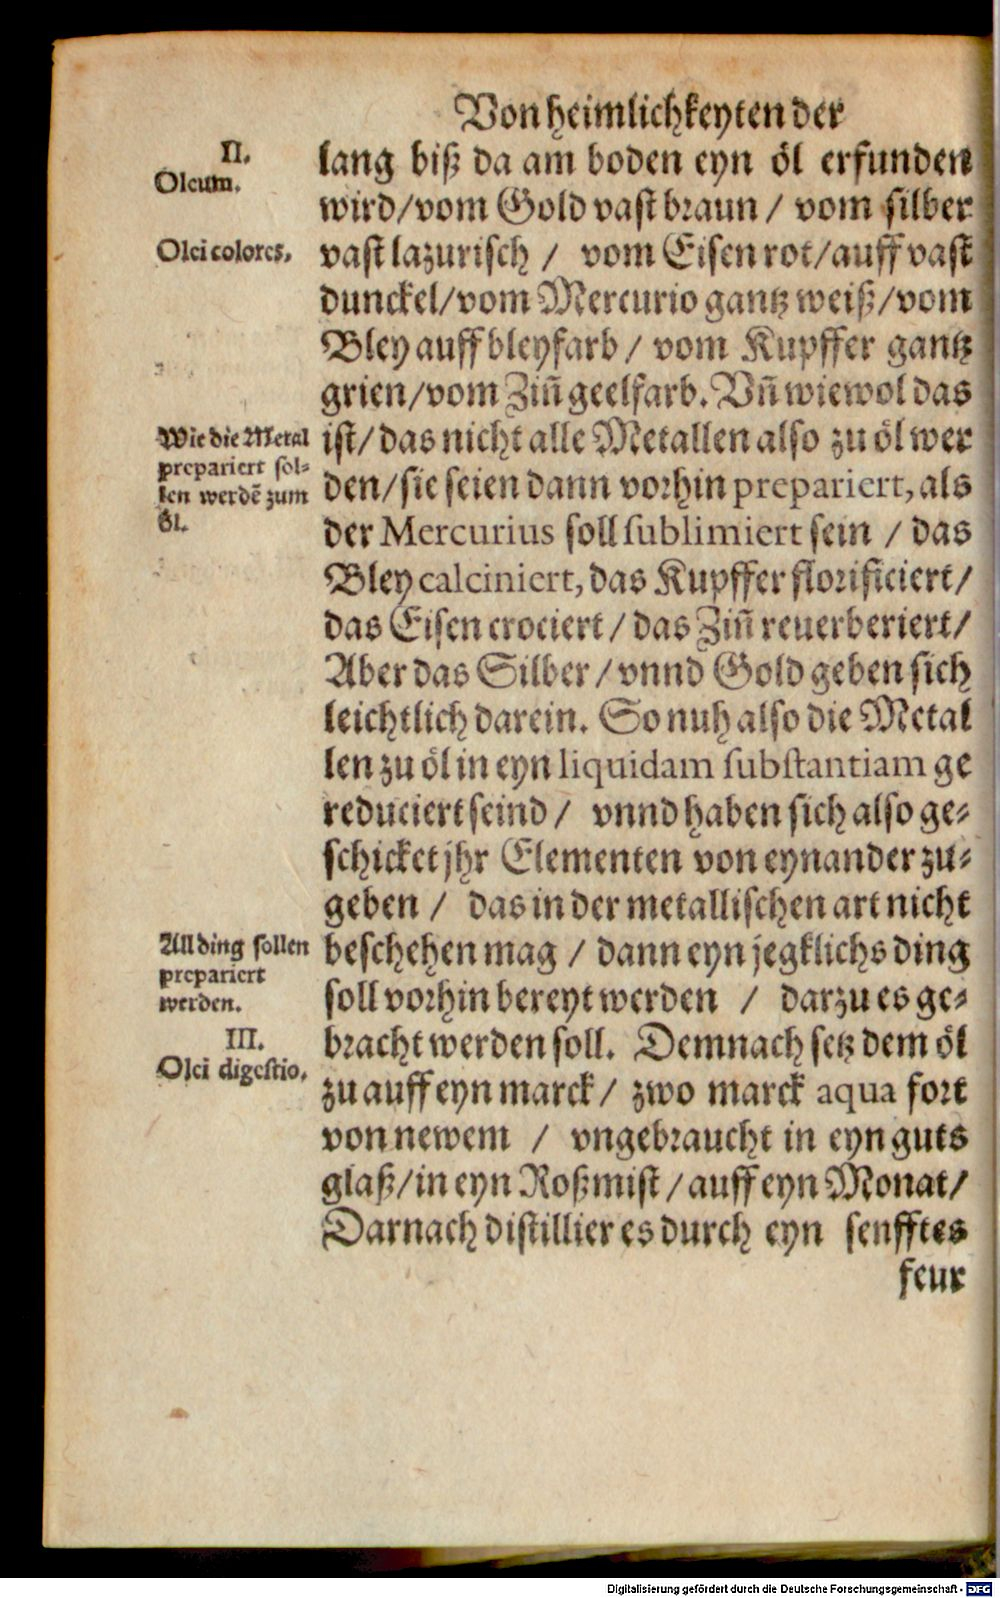 Von heimlichkeyten der
II.
Oleum.
lang biß da am boden eyn öl erfunden
wird/vom Gold vast braun / vom silber
Olei colores.
vast lazurisch / vom Eisen rot/auff vast
dunckel/vom Mercurio gantz weiß/vom
Bley auff bleyfarb / vom Kupffer gantz
grien/vom Ziñ geelfarb. Vñ wiewol das
Wie die Metal
prepariert sol-
len werdẽ zum
öl.
ist/das nicht alle Metallen also zu öl wer
den/sie seien dann vorhin prepariert, als
der Mercurius soll sublimiert sein / das
Bley calciniert, das Kupffer florificiert/
das Eisen crociert/das Ziñ reuerberiert/
Aber das Silber/vnnd Gold geben sich
leichtlich darein. So nuh also die Metal
len zu öl in eyn liquidam substantiam ge
reduciert seind / vnnd haben sich also ge-
schicket jhr Elementen von eynander zu-
geben / das in der metallischen art nicht
All ding sollen
prepariert
werden.
beschehen mag / dann eyn jegklichs ding
soll vorhin bereyt werden / darzu es ge-
III.
Olei digestio.
bracht werden soll. Demnach setz dem öl
zu auff eyn marck/ zwo marck aqua fort
von newem / vngebraucht in eyn guts
glaß/in eyn Roßmist/auff eyn Monat/
Darnach distillier es durch eyn senfftes
feur
Digitalisierung gefördert durch die Deutsche Forschungsgemeinschaft - DFG